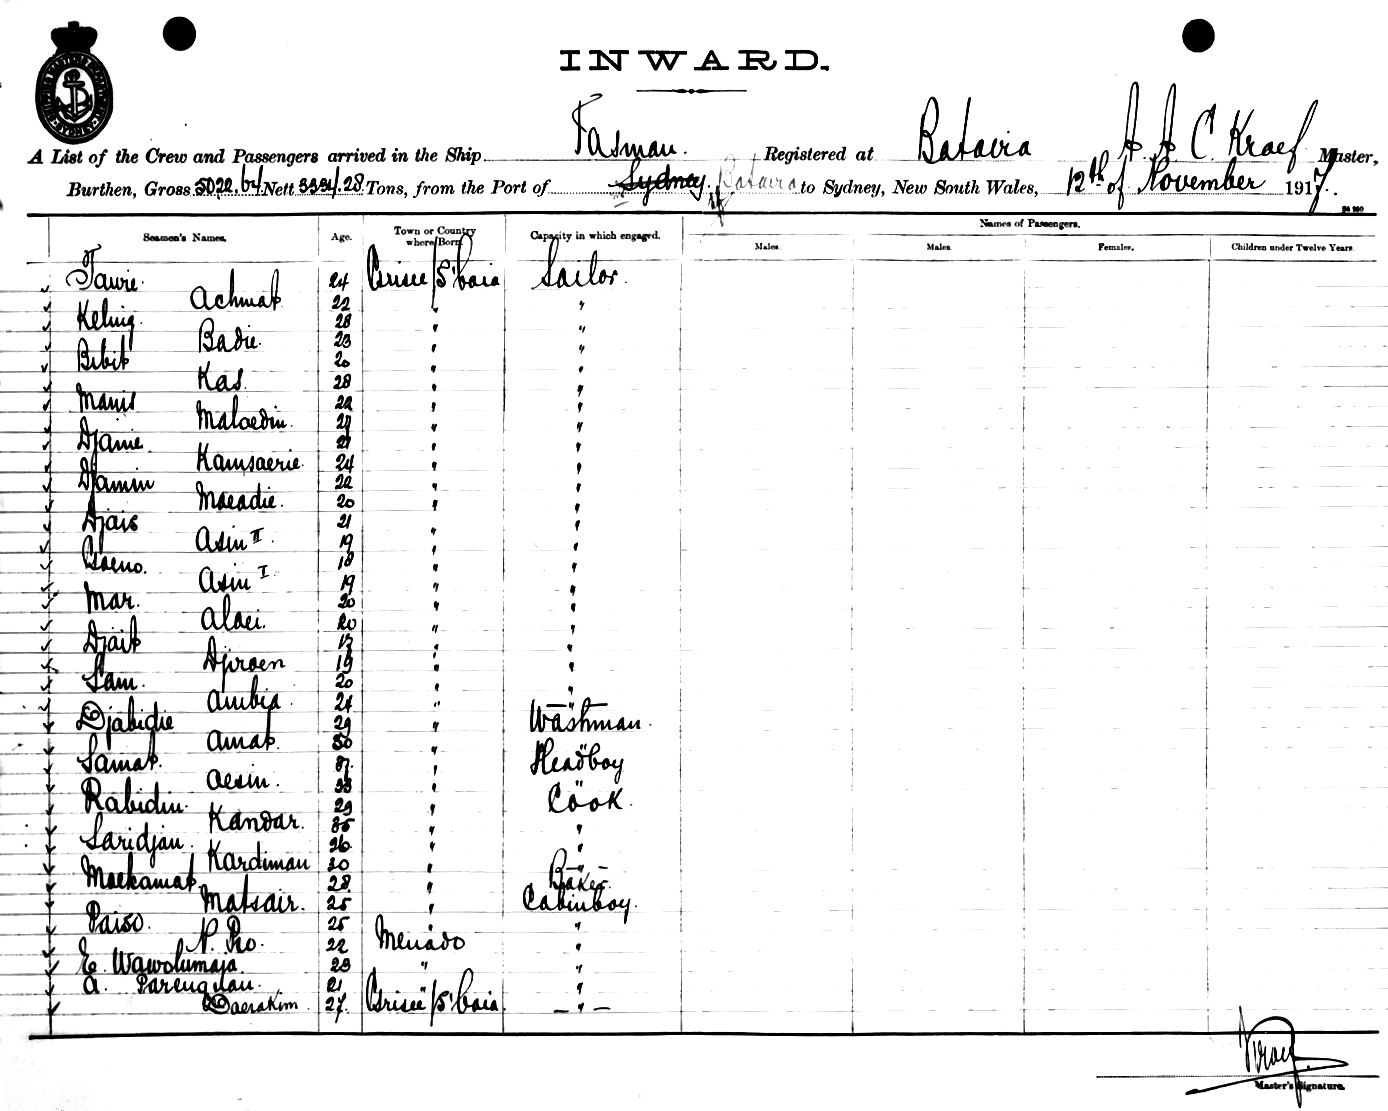 INWARD.
A List of the Crew and Passengers arrived in the Ship Tasman. Registered at Batavia A A C Kraef Master,
Burthen, Gross 5022.64 Nett 3334.28 Tons, from the Port of Sydney. Batavia to Sydney, New South Wales, 12th of November 1917.
Seamen's Names. Age. Town or Country where Born. Capacity in which engaged. Names of Passengers.
Males. Males. Females. Children under Twelve Years
Tawie. 24 Grisee/S'baia Sailor.
Achmat 22 " "
Keling. 28 " "
Badie. 23 " "
Bibit 20 " "
Kas. 28 " "
Manis 22 " "
Maloedin. " "
Djanie. " "
Kamsaerie. 24 " "
Djamin 22 " "
Moeadie. 20 " "
Djais 21 " "
Asin II. 19 " "
18 " "
Asin I 19 " "
Mar. 20 " "
Alaei. 20 " "
Djait " "
Djiroen 19 " "
Sam. 20 " "
Ambia 24 " "
Djabidie 29 " Washman.
Amat. 30 " "
Samat. " Headboy
Aesin. 33 " "
Rabidin. 29 " Cook.
Kandar. 35 " "
Saridjan. 26 " "
Kardiman 30 " "
Moekamat. 28 " Baker
Matsair. 25 " Cabinboy.
Paiso. 25 " "
N. Pro. 22 Menado "
E. Wawolumaja. 23 " "
A. Parengkuan. 21 "
Daerakim. 27. Grisee/S'baia. "
Kraef
Master's Signature.